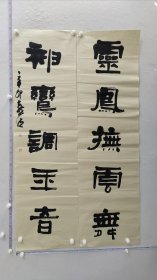 靈鳳撫雲舞
神鸞調玉音